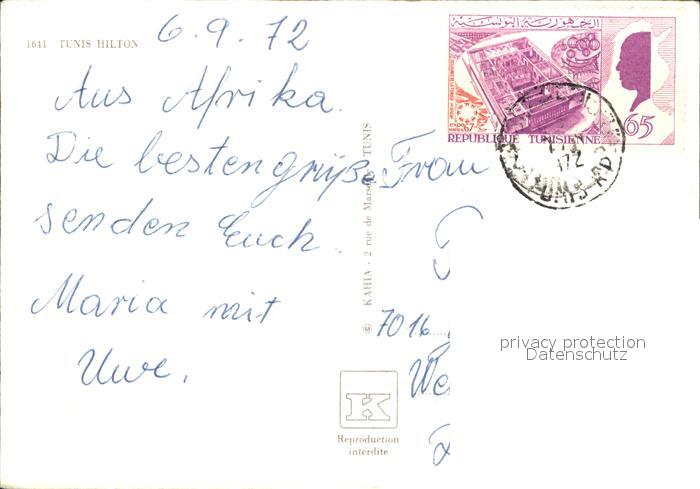 6.9.72
1641 TUNIS HILTON
الجمهورية التونسية
EXPO 67
65
REPUBLIQUE TUNISIENNE
Aus Afrika.
Die besten grüße
senden Euch.
Maria mit
Uwe.
Frau
7016
© KAHIA - 2 rue de Marseille - TUNIS
K
Reproduction
interdite
privacy protection
Datenschutz